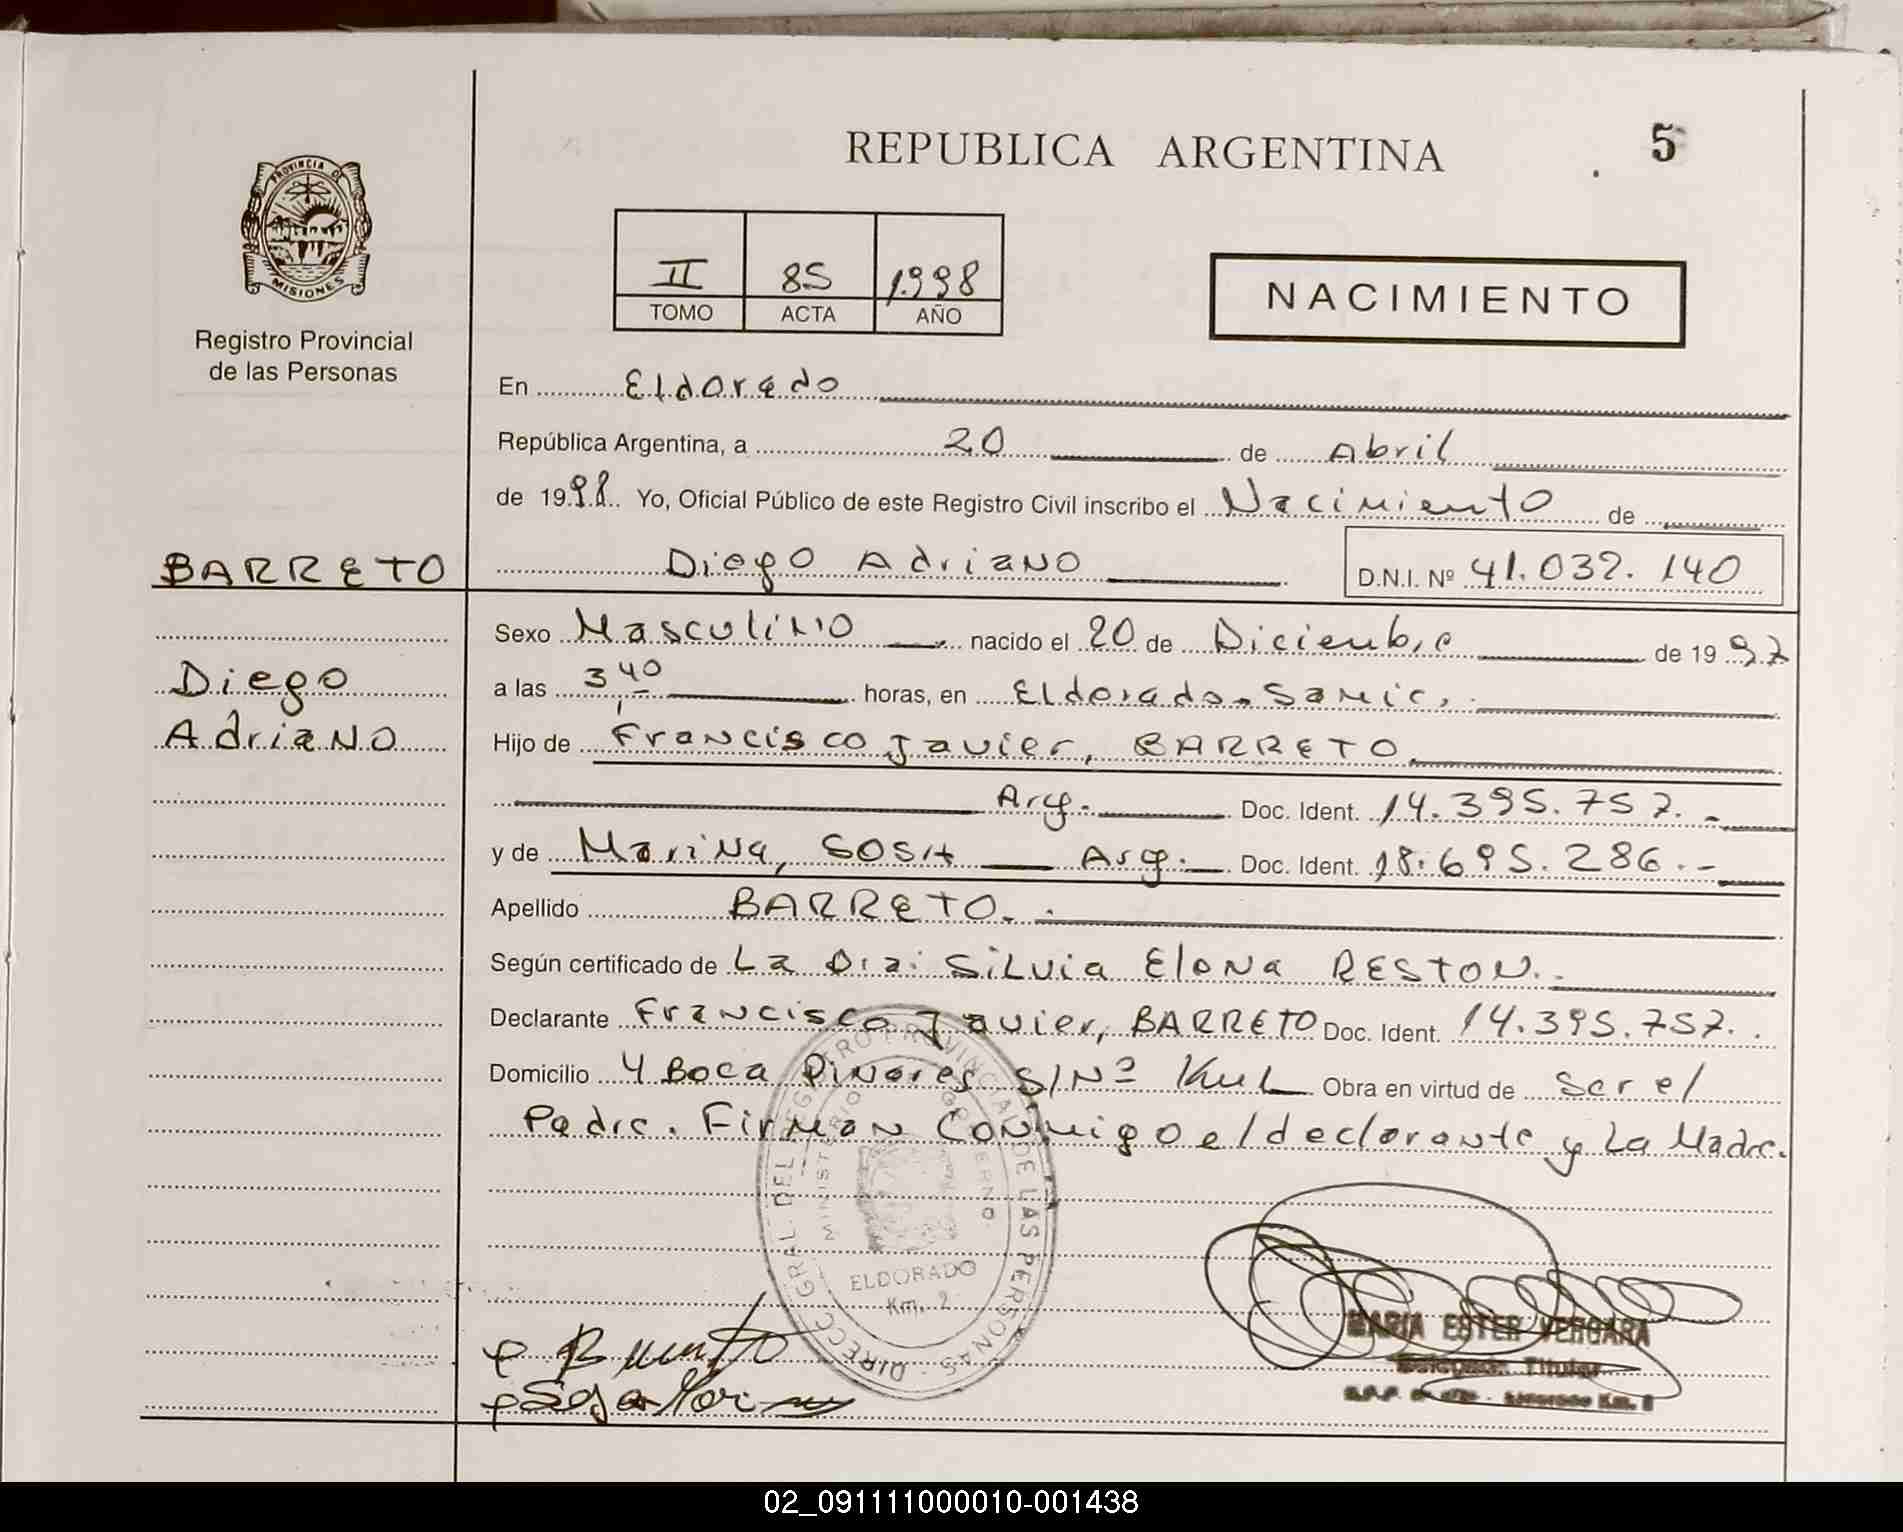 REPUBLICA ARGENTINA
5
PROVINCIA DE
MISIONES
Registro Provincial
de las Personas
II 85 1.998
TOMO ACTA AÑO
NACIMIENTO
En Eldorado
República Argentina, a 20 de Abril
de 1998. Yo, Oficial Público de este Registro Civil inscribo el Nacimiento de
BARRETO Diego Adriano D.N.I. Nº 41.032.140
Sexo Masculino nacido el 20 de Diciembre de 1997
Diego
Adriano
a las 3,40 horas, en Eldorado. Samic.
Hijo de Francisco Javier, BARRETO
Arg. Doc. Ident. 14.395.757.-
y de Marina, SOSA Arg. Doc. Ident. 18.695.286.-
Apellido BARRETO.
Según certificado de La Dra. Silvia Elena RESTON.
Declarante Francisco Javier, BARRETO Doc. Ident. 14.395.757.
Domicilio 4 Boca Pinares S/Nº Obra en virtud de ser el
Padre. Firman Conmigo el declarante y La Madre.
DIRECC. GRAL. DEL REGISTRO PROVINCIAL DE LAS PERSONAS
MINISTERIO GOBIERNO
ELDORADO
Km. 2
MARIA ESTER VERGARA
Titular
02_091111000010-001438